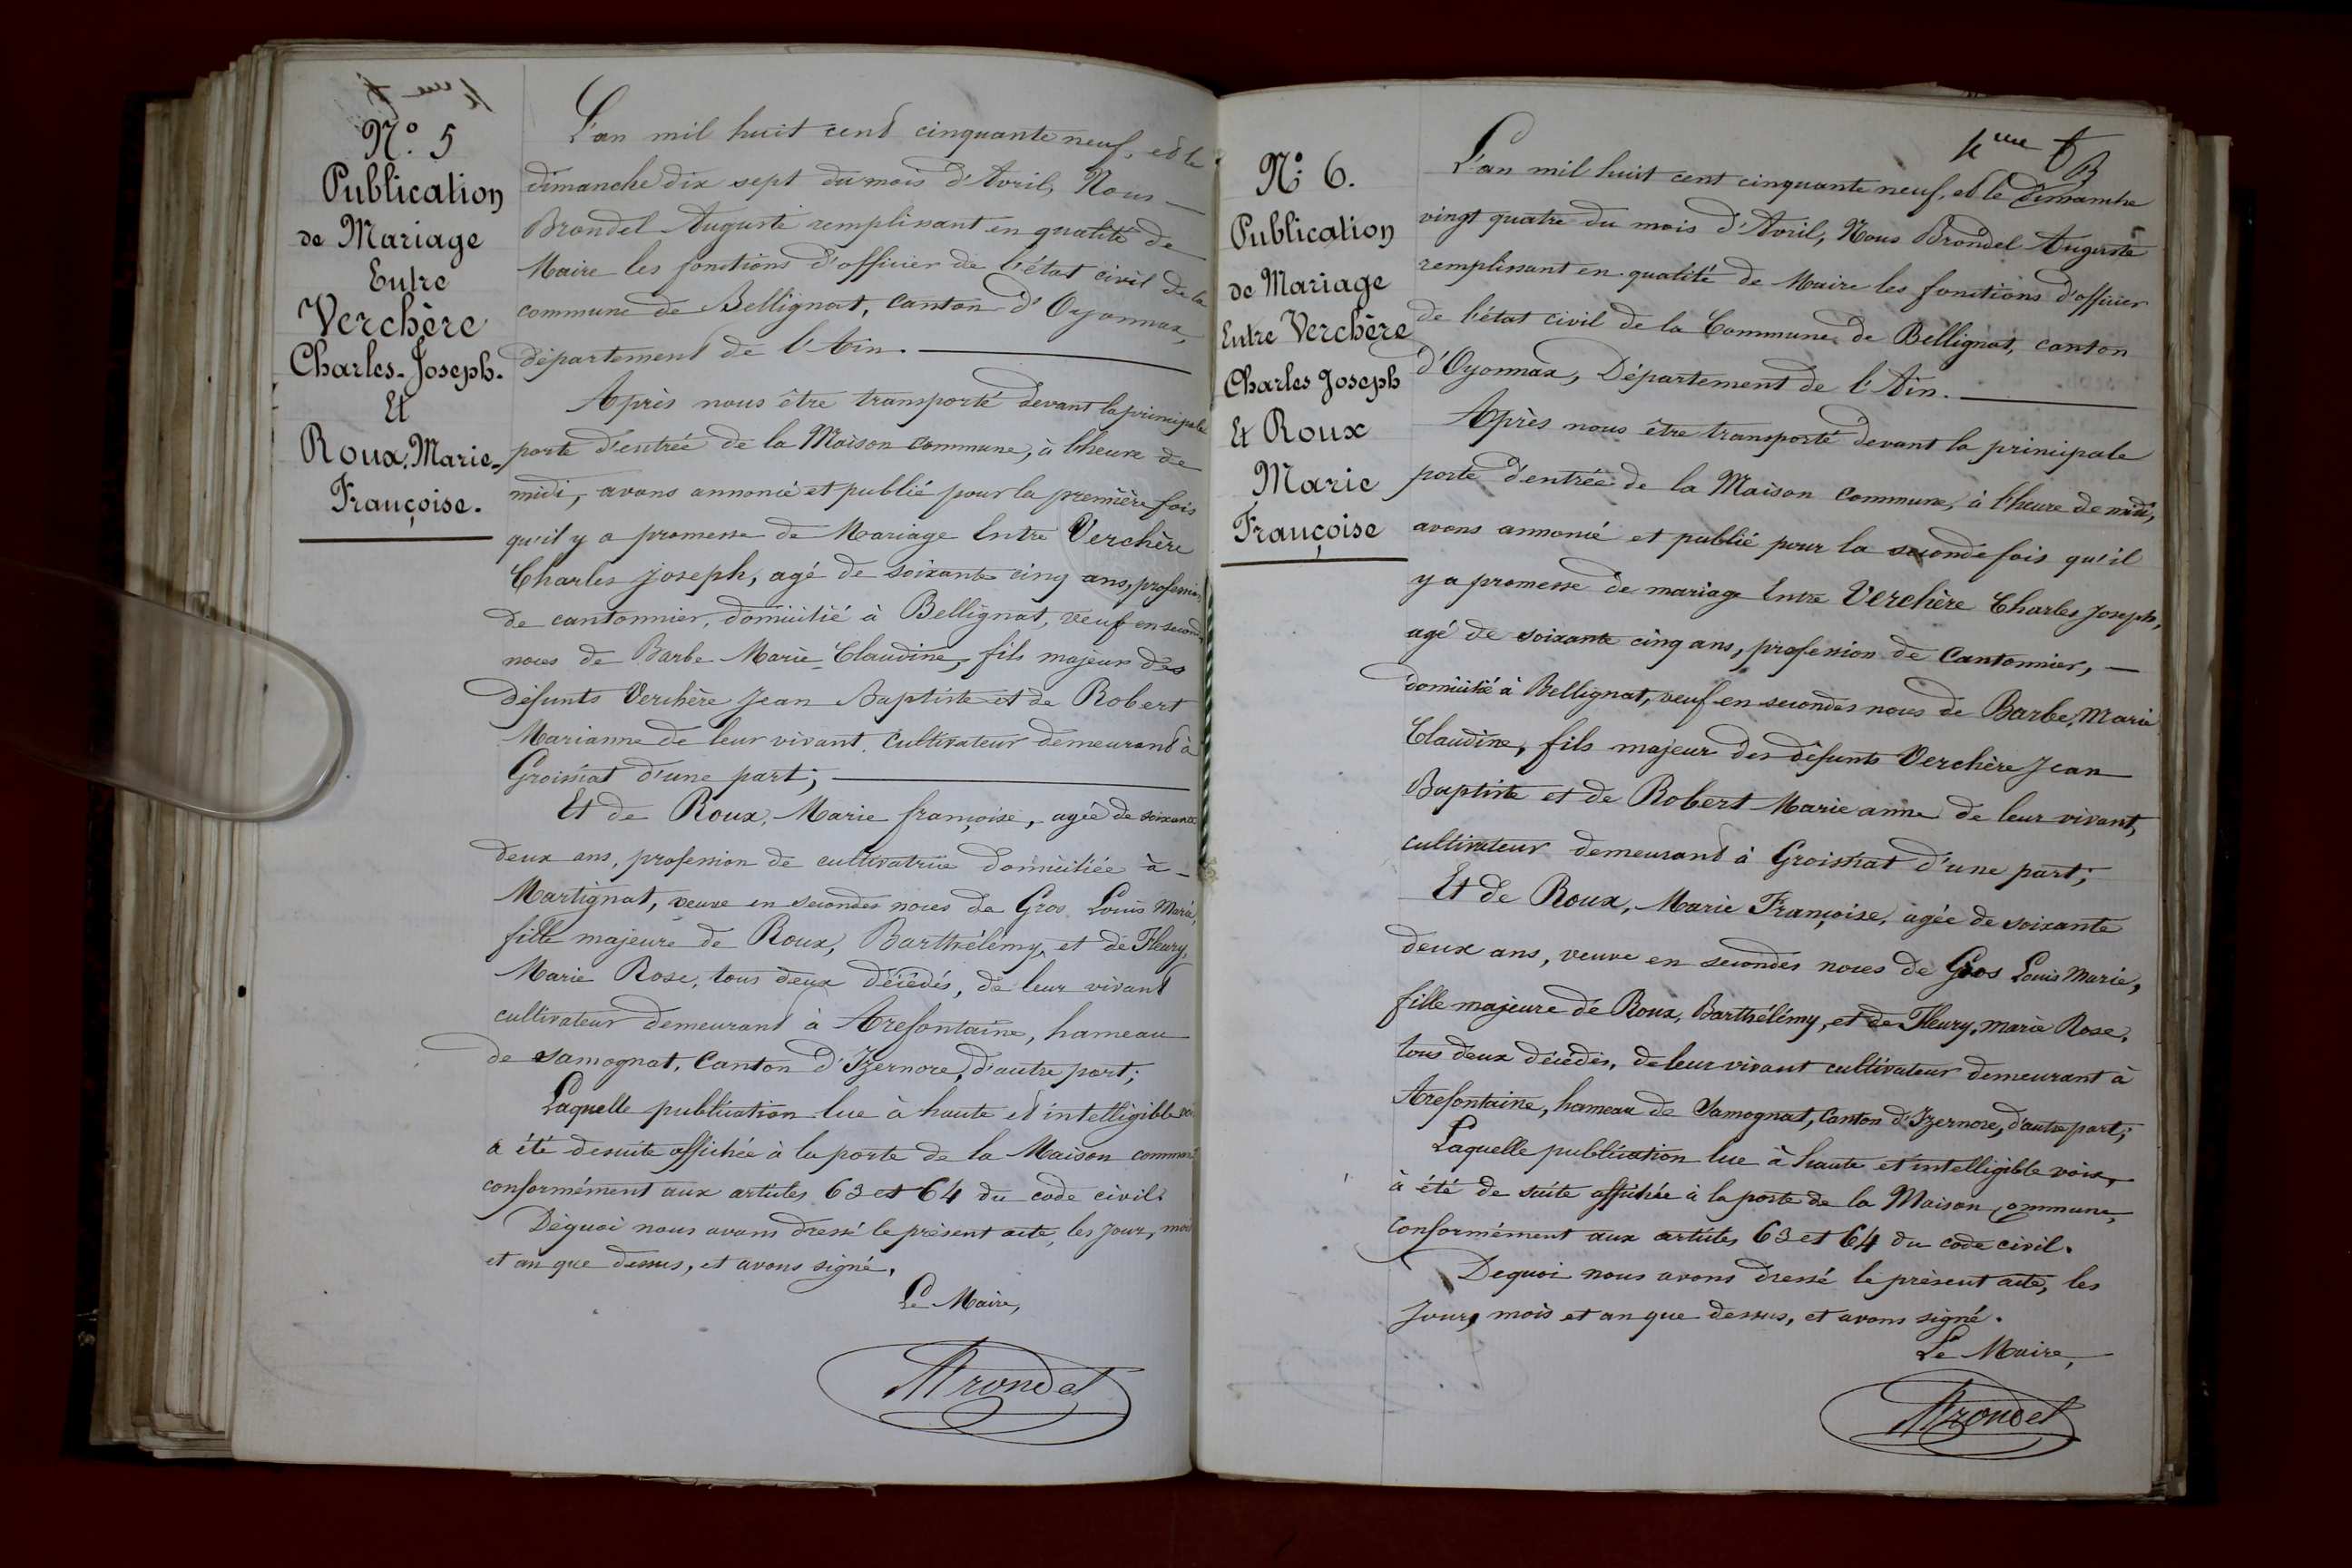 N° 5
Publication
de Mariage
Entre
Verchère
Charles-Joseph.
Et
Roux, Marie-
Françoise.
L'an mil huit cent cinquante neuf, et le
dimanche dix sept du mois d'Avril, Nous —
Brondel Auguste remplissant en qualité de
Maire les fonctions d'officier de l'état civil de la
commune de Bellignat, canton d'Oyonnax,
département de l'Ain. —
Après nous être transporté devant la principale
porte d'entrée de la Maison commune, à l'heure de
midi, avons annoncé et publié pour la première fois
qu'il y a promesse de Mariage Entre Verchère
Charles Joseph, agé de soixante cinq ans, profession
de cantonnier, domicilié à Bellignat, veuf en secondes
noces de Barbe Marie-Claudine, fils majeur des
défunts Verchère Jean Baptiste et de Robert
Marianne de leur vivant cultivateur demeurant à
Groissiat d'une part; —
Et de Roux, Marie françoise, agée de soixante
deux ans, profession de cultivatrice domiciliée à —
Martignat, veuve en secondes noces de Gros Louis Marie,
fille majeure de Roux, Barthélémy, et de Fleury,
Marie Rose, tous deux décédés, de leur vivant
cultivateur demeurant à Arefontaine, hameau
de Samognat, Canton d'Izernore, d'autre part;
Laquelle publication lue à haute et intelligible voix
a été desuite affichée à la porte de la Maison commune
conformément aux articles 63 et 64 du code civil.
Dequoi nous avons dressé le présent acte, les jour, mois
et an que dessus, et avons signé.
Le Maire,
ABrondel
N° 6.
Publication
de Mariage
Entre Verchère
Charles Joseph
Et Roux
Marie
Françoise
L'an mil huit cent cinquante neuf, et le dimanche
vingt quatre du mois d'Avril, Nous Brondel Auguste
remplissant en qualité de Maire les fonctions d'officier
de l'état civil de la Commune de Bellignat, canton
d'Oyonnax, Département de l'Ain. —
Après nous être transporté devant la principale
porte d'entrée de la Maison commune, à l'heure de midi,
avons annoncé et publié pour la seconde fois qu'il
y a promesse de mariage Entre Verchère Charles Joseph,
agé de soixante cinq ans, profession de Cantonnier, —
domicilié à Bellignat, veuf en secondes noces de Barbe, Marie
Claudine, fils majeur des défunts Verchère Jean
Baptiste et de Robert Marie anne de leur vivant,
cultivateur demeurant à Groissiat d'une part;
Et de Roux, Marie Françoise, agée de soixante
deux ans, veuve en secondes noces de Gros Louis Marie,
fille majeure de Roux, Barthélémy, et de Fleury, Marie Rose,
tous deux décédés, de leur vivant cultivateur demeurant à
Arefontaine, hameau de Samognat, Canton d'Izernore, d'autre part;
Laquelle publication lue à haute et intelligible voix,
à été de suite affichée à la porte de la Maison commune,
conformément aux articles 63 et 64 du code civil.
Dequoi nous avons dressé le présent acte, les
jour, mois et an que dessus, et avons signé.
Le Maire,
ABrondel